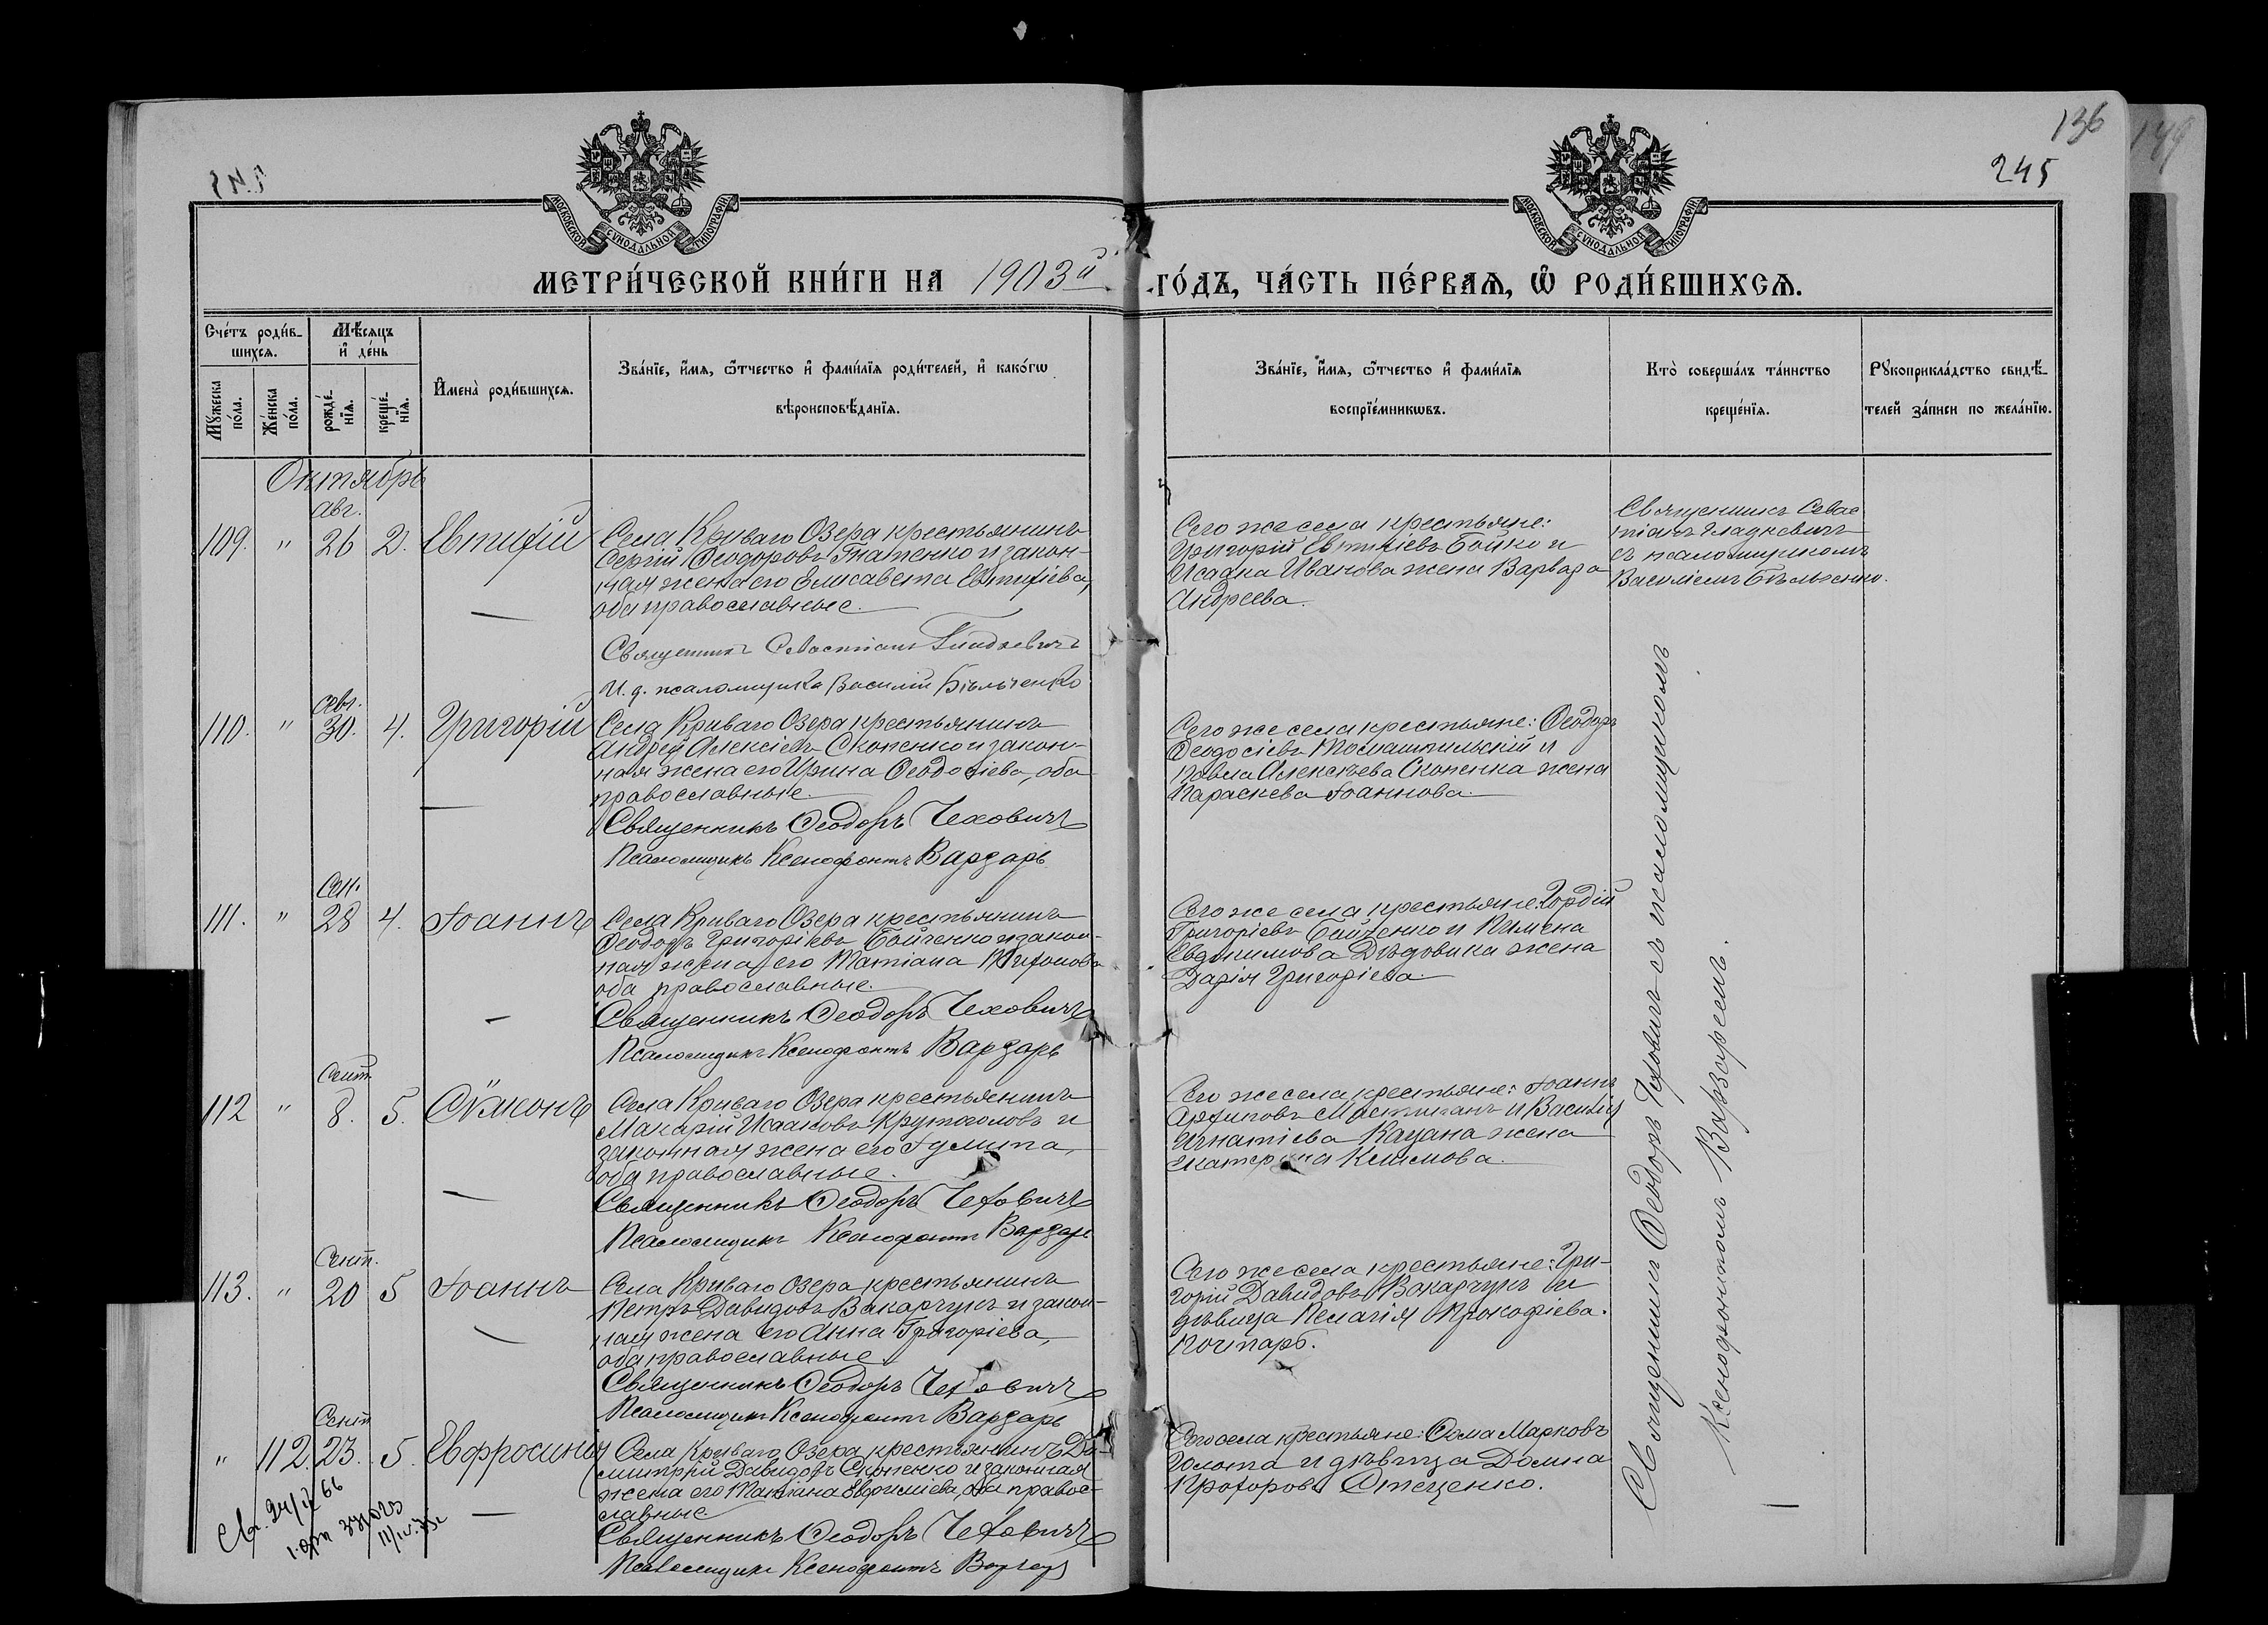 136
245
МОСКОВСКОЙ СѴНОДАЛЬНОЙ ТИПОГРАФІИ
МОСКОВСКОЙ СѴНОДАЛЬНОЙ ТИПОГРАФІИ
МЕТРИ́ЧЕСКОЙ КНИ́ГИ НА 1903й ГО́ДЪ, ЧА́СТЬ ПЕ́РВАѦ, Ѽ РОДИ́ВШИХСѦ.
Сче́тъ роди́в-
шихсѧ.
Мꙋ́жеска по́ла.
Же́нска по́ла.
Мѣ́сѧцъ
и҆ де́нь
рожде́-
нїѧ.
креще́-
нїѧ.
И҆мена̀ роди́вшихсѧ.
Зва́нїе, и҆́мѧ, ѻ҆́тчество и҆ фами́лїѧ роди́телей, и҆ како́гѡ
вѣроисповѣ́данїѧ.
Зва́нїе, и҆́мѧ, ѻ҆́тчество и҆ фами́лїѧ
воспрїе́мникѡвъ.
Кто̀ соверша́лъ та́инство
креще́нїѧ.
Рꙋкоприкла́дство свидѣ́-
телей за́писи по жела́нїю.
Октябрь
авг.
109. " 26 2. Евтихій
Села Криваго Озера крестьянинъ
Сергій Ѳеодоровъ Гнатенко и закон-
ная жена его Елисавета Евтихіева,
оба православные.
Священникъ Севастіанъ Гладкевичъ
И. д. псаломщика Василій Бѣльченко
Сего же села крестьяне:
Григорій Евтихіевъ Бойко и
Исаака Иванова жена Варвара
Андреева.
Священникъ Севас
тіанъ Гладкевичъ
съ псаломщикомъ
Василіемъ Бѣльченко.
110. " 30. 4. Григорій
Села Криваго Озера крестьянинъ
Андрей Алексіевъ Скопенко и закон-
ная жена его Ирина Ѳеодосіева, оба
православные.
Священникъ Ѳеодоръ Чеховичъ
Псаломщикъ Ксенофонтъ Варзарь
Сего же села крестьяне: Ѳеодоръ
Ѳеодосіевъ и
Павла Алексѣева Скопенка жена
Параскева Іоаннова.
Сен.
111. " 28 4. Іоаннъ
Села Криваго Озера крестьянинъ
Ѳеодоръ Григоріевъ Бойченко и закон-
ная жена его Татіана
оба православные.
Священникъ Ѳеодоръ Чеховичъ
Псаломщикъ Ксенофонтъ Варзарь
Сего же села крестьяне: Гордій
Григоріевъ Бойченко и Пимена
Евдокимова Дѣдовика жена
Дарія Григоріева.
Сент.
112 " 8. 5.
Села Криваго Озера крестьянинъ
Макарій Исааковъ Крутоголовъ и
законная жена его Іулита,
оба православные.
Священникъ Ѳеодоръ Чеховичъ
Псаломщикъ Ксенофонтъ Варзарь
Сего же села крестьяне: Іоаннъ
Архиповъ и Василія
Игнатіева Кацана жена
Екатерина Климова.
Сент.
113. " 20 5 Іоаннъ
Села Криваго Озера крестьянинъ
Петръ Давидовъ Вакарчукъ и закон-
ная жена его Анна Григоріева,
оба православные
Священникъ Ѳеодоръ Чеховичъ
Псаломщикъ Ксенофонтъ Варзарь
Сего же села крестьяне: Гри-
горій Давидовъ Вакарчукъ и
дѣвица Пелагія Прокофіева
Сент
" 112. 23. 5. Евфросинія
Села Криваго Озера крестьянинъ Ди-
митрій Давидовъ Скопенко и законная
жена его Татіана Евфиміева, оба право-
славные.
Священникъ Ѳеодоръ Чеховичъ
Псаломщикъ Ксенофонтъ Варзарь
Сего села крестьяне: Ѳома Марковъ
Голота и дѣвица Домна
Прохорова Стеценко.
Священникъ Ѳеодоръ Чеховичъ съ псаломщикомъ
Ксенофонтомъ Варзаремъ.